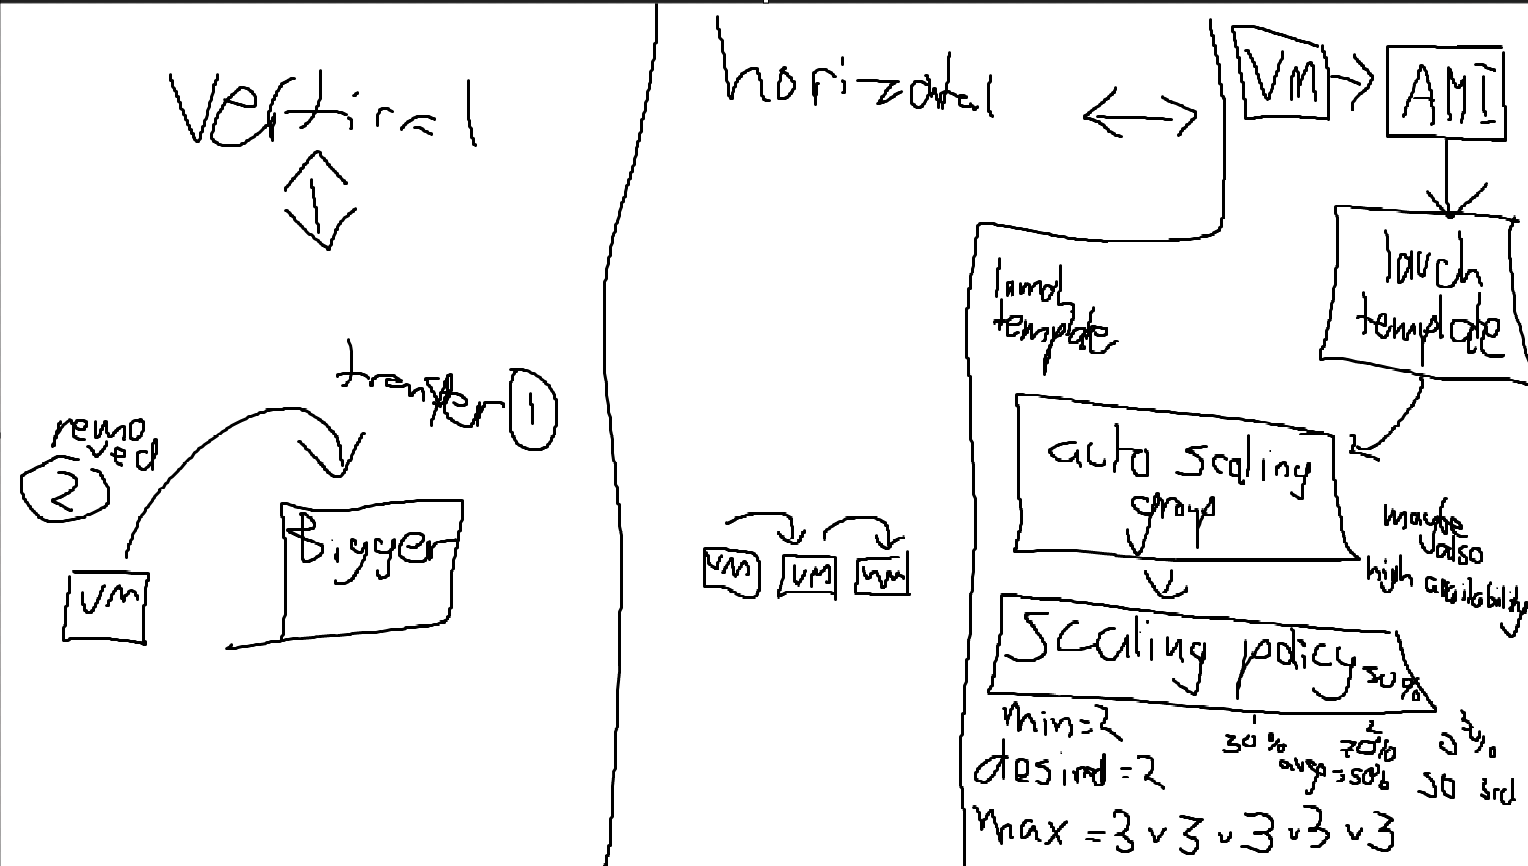 vertical
transfer 1
remo
ved
2
VM
Bigger
horizatal
VM VM VM
VM
AMI
lauch
template
template
auto scaling
group
maybe
also
high availability
scaling policy 50%
min=2
desird=2
max =3 v 3 v 3 v 3 v 3
1
30%
2
70%
avg=50%
50 3rd